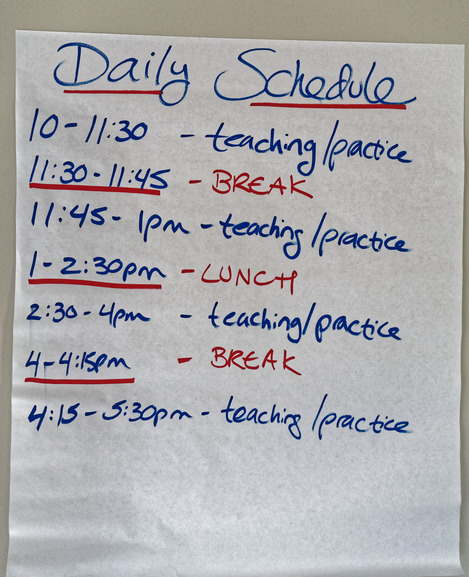 Daily Schedule
10-11:30 - teaching/practice
11:30-11:45 - BREAK
11:45-1pm - teaching/practice
1-2:30pm - LUNCH
2:30-4pm - teaching/practice
4-4:15pm - BREAK
4:15-5:30pm - teaching/practice